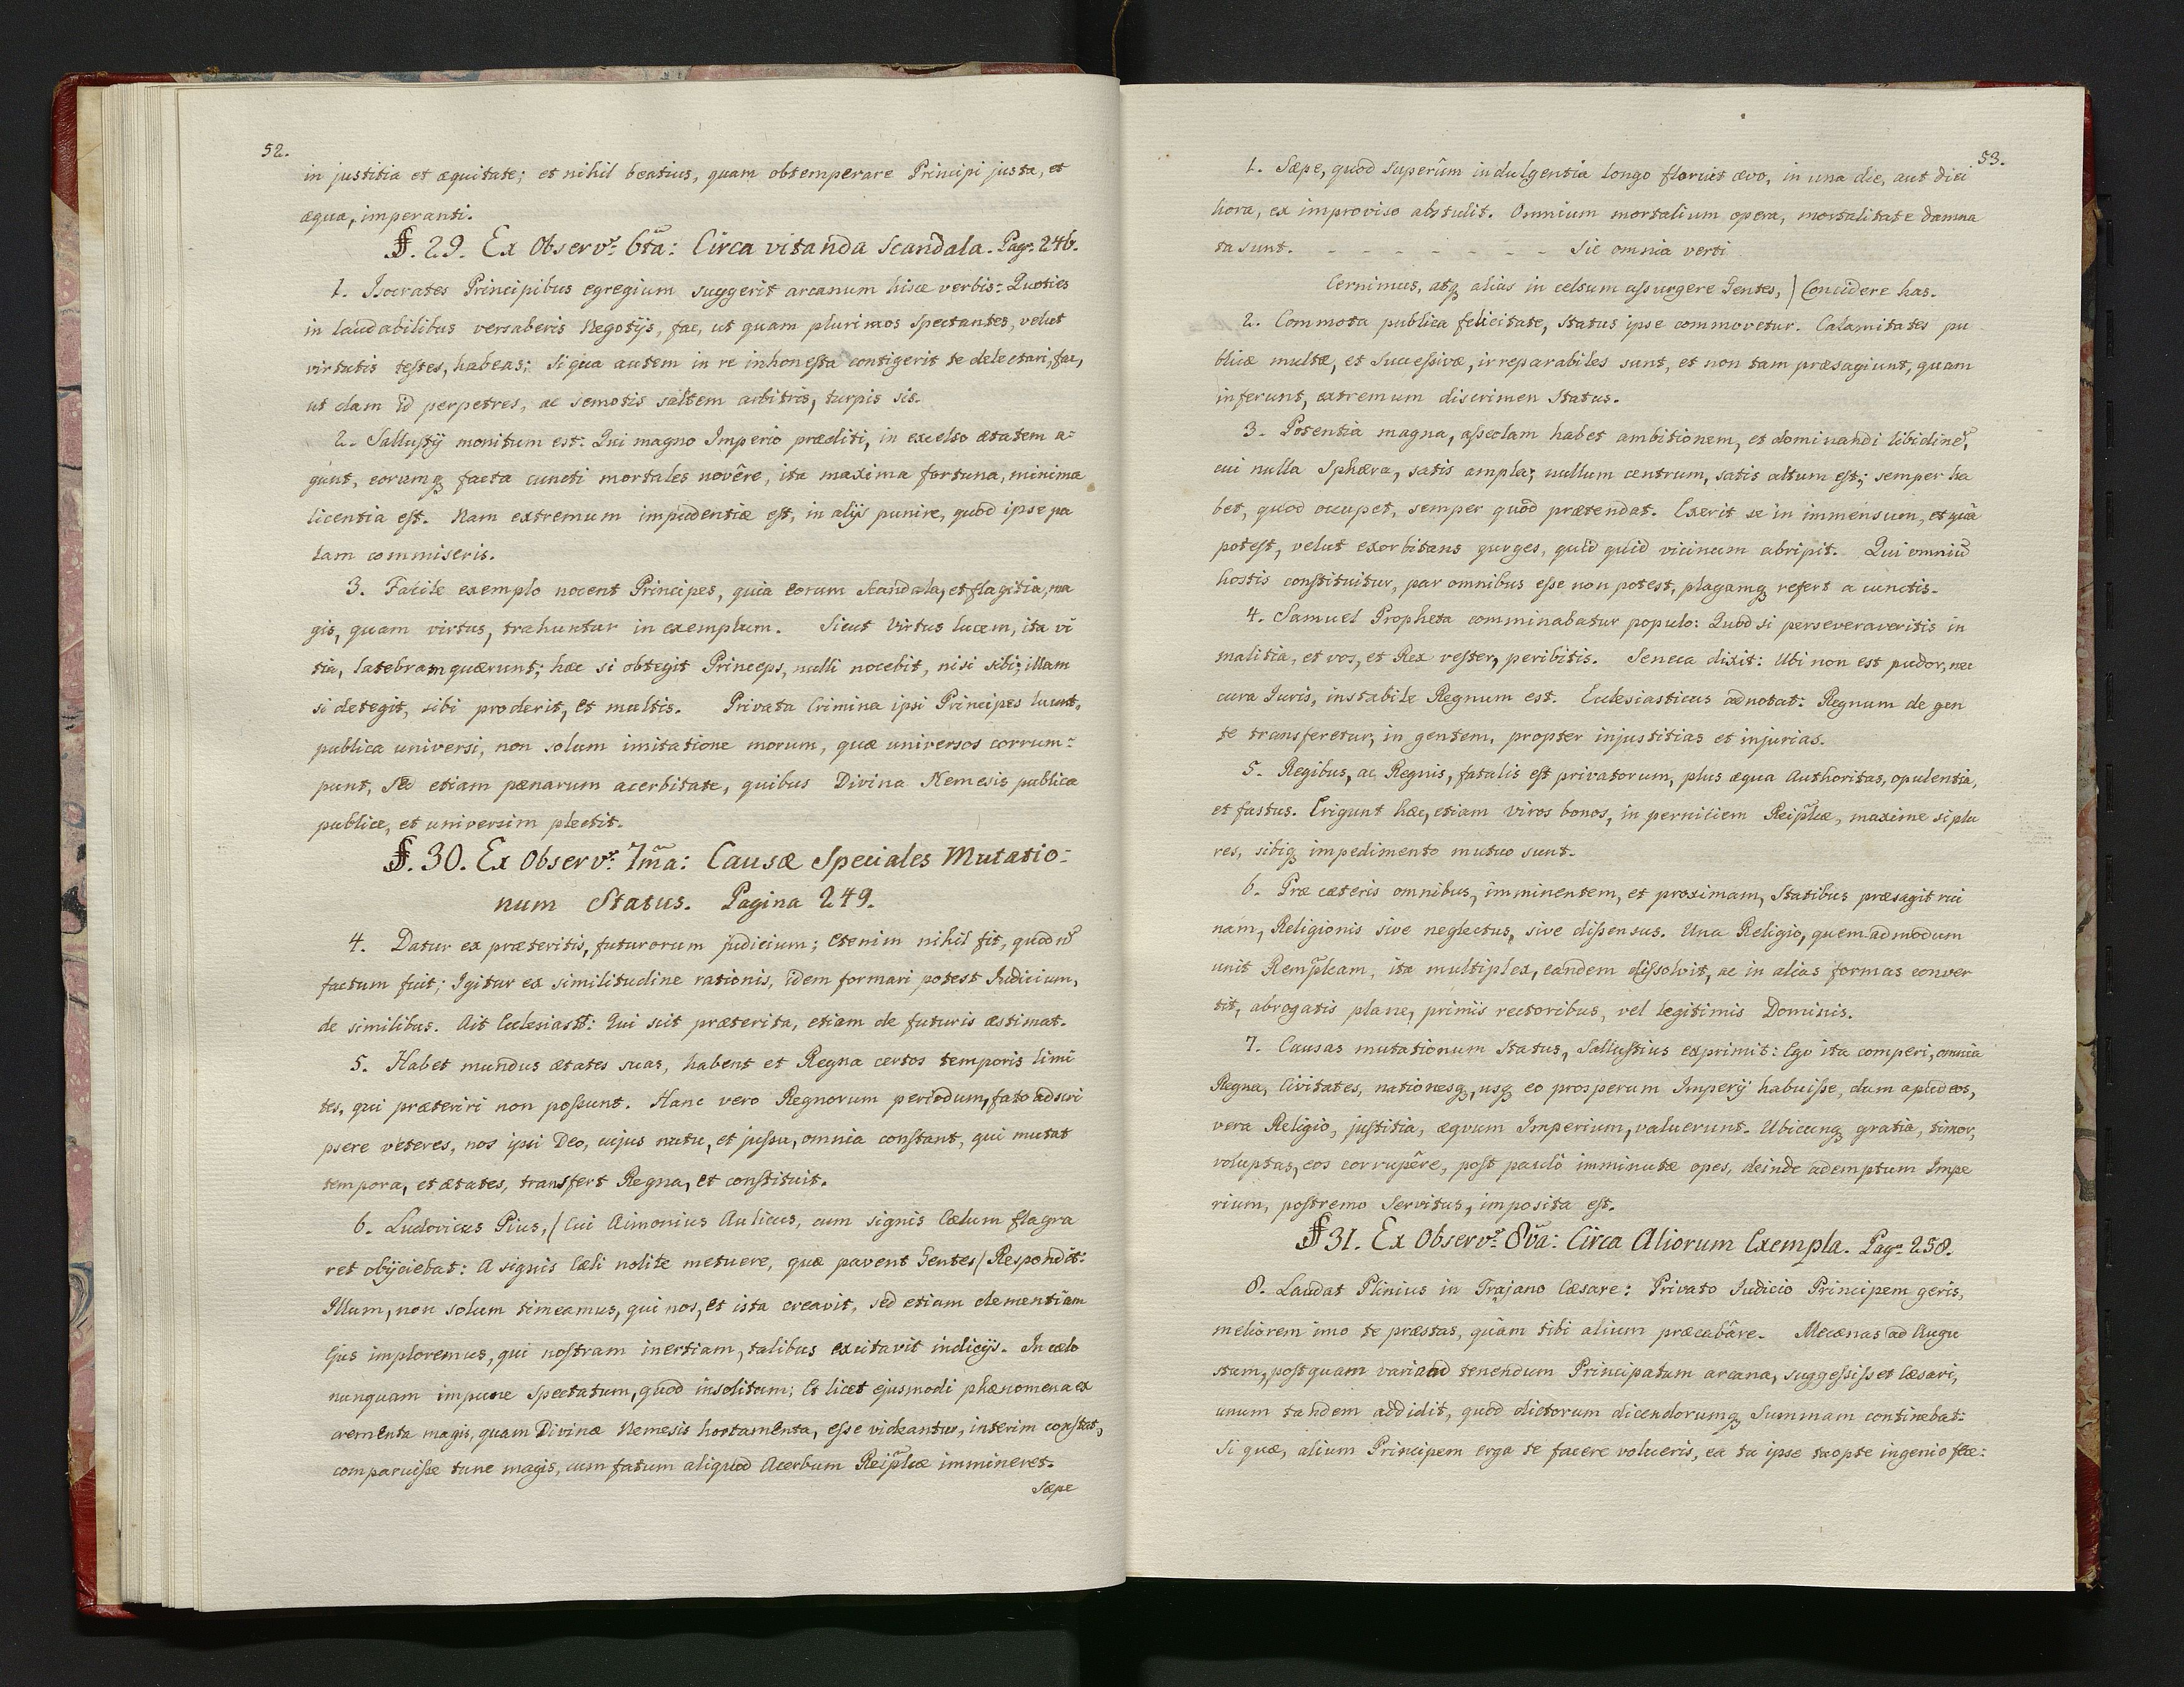 52.
in justitia et æquitate; et nihil beatius, quam obtemperare Principi justa, et
æqua, imperanti.
§. 29. Ex Observ: 6ta: Circa vitanda Scandala. Pag. 246.
1. Isocrates Principibus egregium suggerit arcanum hisce verbis: Quoties
in laudabilibus versaberis Negotijs, fac, ut quam plurimos spectantes, velut
virtutis testes, habeas; si qua autem in re inhonesta contigerit te delectari, fac,
ut clam id perpetres, ac semotis saltem arbitris, turpis sis.
2. Sallustij monitum est: Qui magno Imperio præditi, in excelso ætatem a-
gunt, eorumq facta cuncti mortales novêre, ita maxima fortuna, minima
licentia est. Nam extremum impudentiæ est, in alijs punire, quod ipse pa
lam commiseris.
3. Facile exemplo nocent Principes, quia eorum Scandala, et flagitia, ma
gis, quam virtus, trahuntur in exemplum. Sicut Virtus lucem, ita vi
tia, latebram quærunt; hæc si obtegit Princeps, nulli nocebit, nisi sibi; illam
si detegit, sibi proderit, et multis. Privata Crimina ipsi Principes luunt,
publica universi, non solum imitatione morum, quæ universos corrum-
punt, Sed etiam pænarum acerbitate, quibus Divina Nemesis publica
publice, et universim plectit.
§. 30. Ex Observ: 7ma: Causæ Speciales Mutatio-
num Status. Pagina 249.
4. Datur ex præteritis, futurorum judicium; etenim nihil fit, quod nō
factum fuit; Igitur ex similitudine rationis, idem formari potest Judicium,
de similibus. Ait Ecclesiast: Qui scit præterita, etiam de futuris æstimat.
5. Habet mundus ætates suas, habent et Regna certos temporis limi
tes, qui præteriri non possunt. Hanc vero Regnorum periodum, fato adscri
psere veteres, nos ipsi Deo, cujus natu, et jussu, omnia constant, qui mutat
tempora, et ætates, transfert Regna, et constituit.
6. Ludovicus Pius, /Cui Aimonius Aulicus, cum signis Cælum flagra
ret obijciebat: A signis Cæli nolite metuere, quæ pavent Gentes/ Respondit:
Illum, non solum timeamus, qui nos, et ista creavit, sed etiam clementiam
Ejus imploremus, qui nostram inertiam, talibus excitavit indicijs. In cælo
nunquam impune spectatum, quod insolitum; Et licet ejusmodi phænomena ex
crementa magis, quam Divinæ Nemesis hortamenta, esse videantur, interim constat,
comparuisse tunc magis, cum fatum aliquod Acerbum Reiplcæ immineret.
Sæpe
53.
1. Sæpe, quod Superûm indulgentia longo floruit ævo, in una die, aut diei
hora, ex improviso abstulit. Omnium mortalium opera, mortalitate damna
ta sunt. - - - - - - - - Sic omnia verti
Cernimus, atq alias in celsum assurgere Gentes, / Concidere has.
2. Commota publica felicitate, Status ipse commovetur. Calamitates pu
blicæ multæ, et Successivæ, irreparabiles sunt, et non tam præsagiunt, quam
inferunt, extremum discrimen Status.
3. Potentia magna, asseclam habet ambitionem, et dominandi libidinē,
cui nulla Sphæra, satis ampla; nullum centrum, satis altum est; semper ha
bet, quod occupet, semper quod prætendat. Exerit se in immensum, et quâ
potest, velut exorbitans gurges, quid quid vicinum abripit. Qui omniū
hostis constituitur, par omnibus esse non potest, plagamq refert a cunctis.
4. Samuel Propheta comminabatur populo: Quod si perseveraveritis in
malitia, et vos, et Rex vester, peribitis. Seneca dixit: Ubi non est pudor, nec
cura Juris, instabile Regnum est. Ecclesiasticus adnotat: Regnum de gen
te transferetur, in gentem, propter injustitias et injurias.
5. Regibus, ac Regnis, fatalis est privatorum, plus æqua Authoritas, opulentia,
et fastus. Erigunt hæc, etiam viros bonos, in perniciem Reiplcæ, maxime si plu
res, sibiq impedimento mutuo sunt.
6. Præ cæteris omnibus, imminentem, et proximam, Statibus præsagit rui
nam, Religionis sive neglectus, sive dissensus. Una Religio, quemadmodum
unit Remplcam, ita multiplex, eandem dissolvit, ac in alias formas conver
tit, abrogatis plane, primis rectoribus, vel legitimis Dominis.
7. Causas mutationum Status, Sallustius exprimit: Ego ita comperi, omnia
Regna, Civitates, nationesq, usq eo prosperum Imperij habuisse, dum apud eos,
vera Religio, justitia, æqvum Imperium, valuerunt. Ubicunq gratia, timor,
voluptas, eos corrupêre, post paulò imminutæ opes, deinde ademptum Impe
rium, postremo Servitus, imposita est.
§ 31. Ex Observ: 8va: Circa Aliorum Exempla. Pag. 258.
8. Laudat Plinius in Trajano Cæsare: Privato Judicio Principem geris,
meliorem imo te præstas, quàm tibi alium præcabâre. Mecænas ad Augu
stum, postquam varia ad tenendum Principatum arcana, suggessisset Cæsari,
unum tandem addidit, quod dictorum dicendorumq Summam continebat:
Si quæ, alium Principem erga te facere volueris, ea tu ipse tuopte ingenio fac: